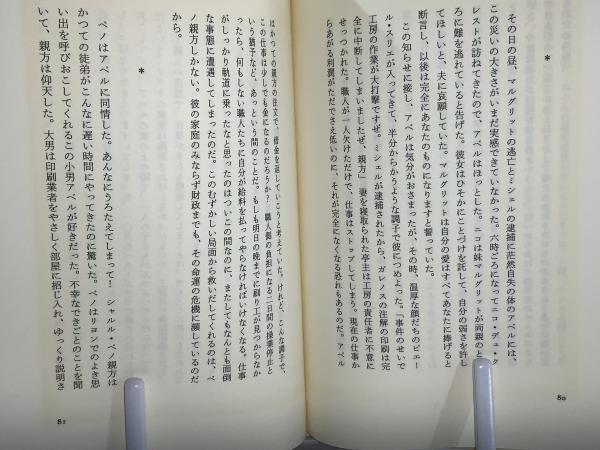 *
その日の昼、マルグリットの逃亡とミシェルの逮捕に茫然自失の体のアベルには、
この災いの大きさがいまだ実感できていなかった。六時ごろになってニコ・デュ・ク
レストが訪ねてきたので、アベルはほっとした。ニコは妹マルグリットが両親のとこ
ろに難を逃れていると告げた。彼女はひそかにことづけを託して、自分の弱さを許し
てほしいと、夫に哀願していた。マルグリットは自分の愛はすべてあなたに捧げると
断言し、以後は完全にあなたのものになりますと誓っていた。
この知らせに接し、アベルは気分がおさまったが、その時、温厚な顔だちのピエー
ル・スリエが入ってきて、半分からかうような調子で彼につめよった。「事件のせいで
工房の作業が大打撃ですぜ。ミシェルが逮捕されたから、ガレノスの注解の印刷は完
全に中断してしまいましたぜ、親方」妻を寝取られた亭主は工房の責任者に不意に
せっつかれた。職人が一人欠けただけで、仕事はストップしてしまう。現在の仕事か
らあがる利潤がただでさえ低いのに、それが完全になくなる恐れもあるのだ。アベル
80
はかつての親方の注文で、借金を返していこうと考えていた。けれど、こんな調子で、
この仕事は少しでも金になるのだろうか? 職人側の負担になる二日間の操業停止と
いう猶予など、あっという間のことだ。もしも明日の晩までに刷り工が見つからなか
ったら、何もしない職人たちに自分が給料を払ってやらなければいけなくなる。仕事
がしっかり軌道に乗ったなと思ったのはついこの間なのに、またしてもなんとも面倒
な事態に遭遇してしまったのだ。このむずかしい局面から救いだしてくれるのは、ペ
ノ親方しかない。彼の家庭のみならず財政までも、その命運の危機に瀕しているのだ
から。
*
ペノはアベルに同情した。あんなにうろたえてしまって! シャルル・ペノ親方は
かつての徒弟がこんなに遅い時間にやってきたのに驚いた。ペノはリヨンでのよき思
い出を呼びおこしてくれるこの小男アベルが好きだった。不幸なできごとのことを聞
いて、親方は仰天した。大男は印刷業者をやさしく部屋に招じ入れ、ゆっくり説明さ
81